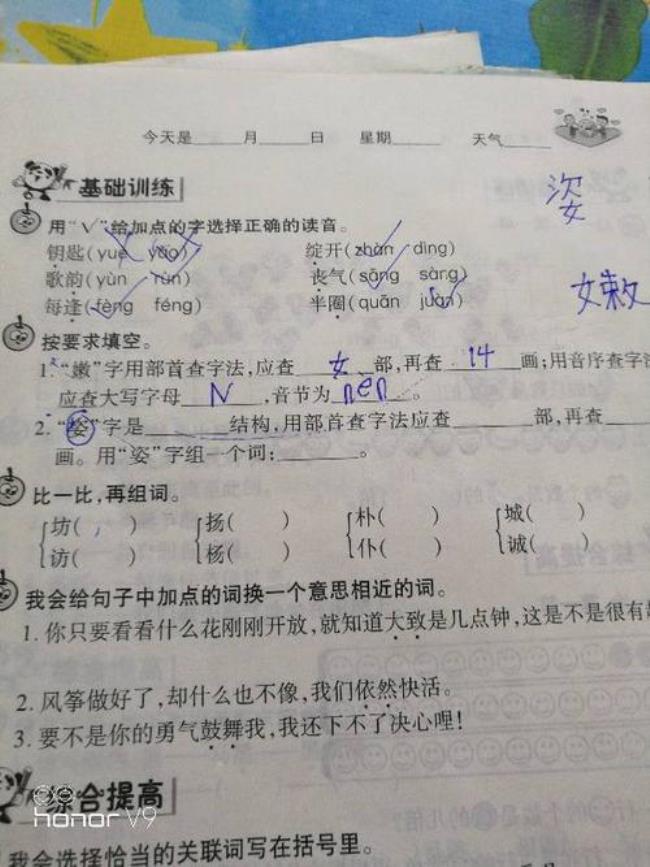 今天是____月____日 星期____ 天气____
基础训练
姿
用“√”给加点的字选择正确的读音。
钥匙(yuè yào) 绽开(zhàn dìng)
歌韵(yùn rùn) 丧气(sāng sàng)
嫩
每逢(fèng féng) 半圈(quān juàn)
按要求填空。
1.“嫩”字用部首查字法,应查 女 部,再查 14 画;用音序查字
应查大写字母 N ,音节为 nen 。
2.“姿”字是____结构,用部首查字法应查____部,再查____
画。用“姿”字组一个词:____。
比一比,再组词。
坊( ) 扬( ) 朴( ) 城( )
访( ) 杨( ) 仆( ) 诚( )
我会给句子中加点的词换一个意思相近的词。
1. 你只要看看什么花刚刚开放,就知道大致是几点钟,这是不是很有
2. 风筝做好了,却什么也不像,我们依然快活。
3. 要不是你的勇气鼓舞我,我还下不了决心哩!
综合提高
honor V9
我会选择恰当的关联词写在括号里。